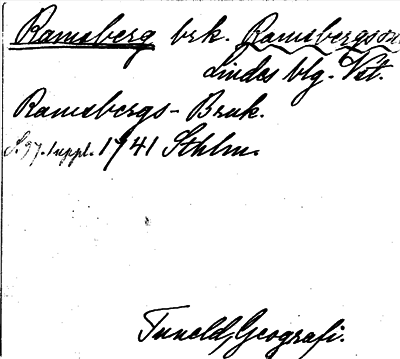 Ramsberg brk. Ramsbergs sn
Lindes blg. Vst.
Ramsbergs-Bruk.
S. 37. suppl. 1941 Sthlm.
Tuneld, Geografi.